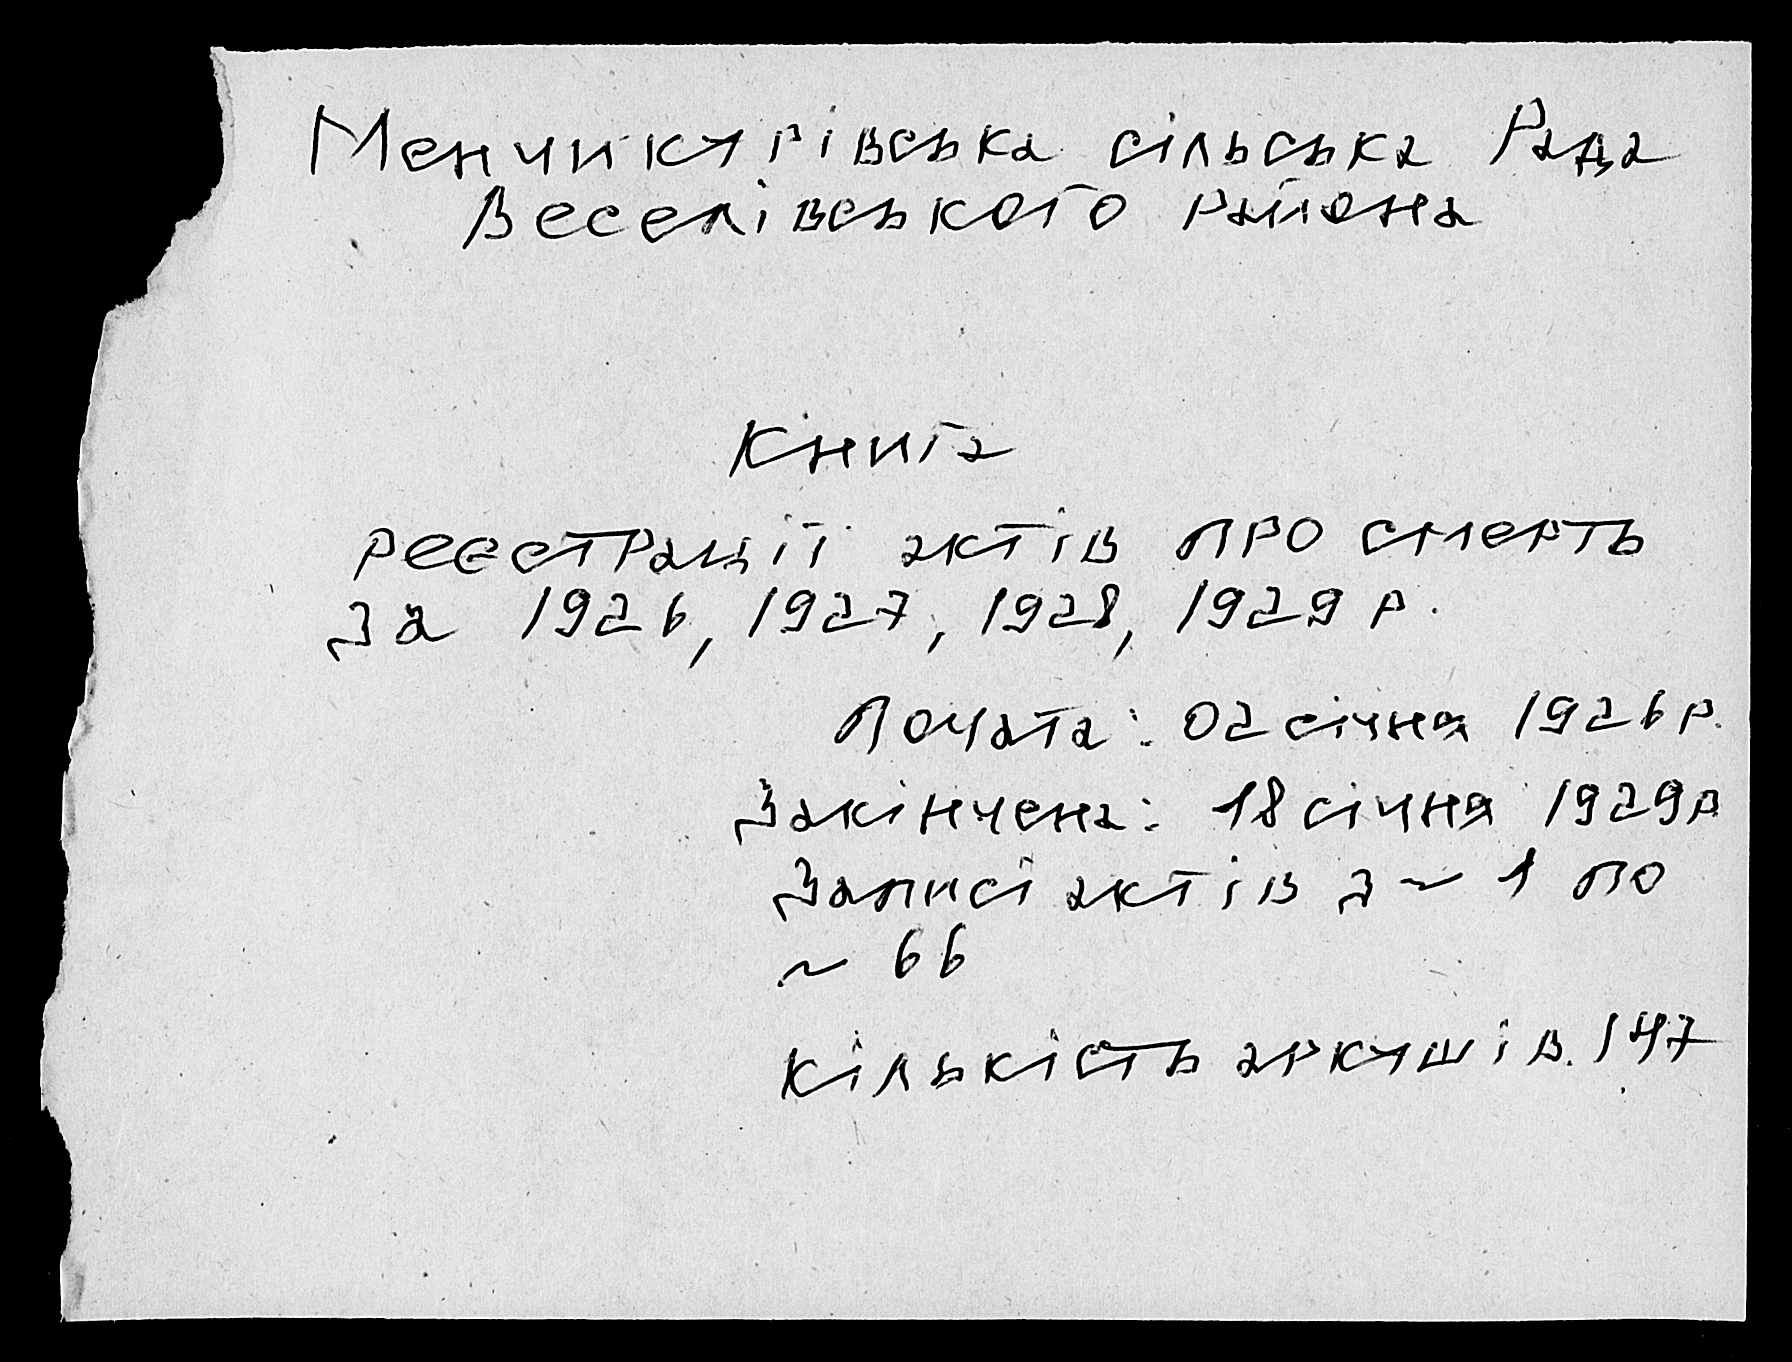 Менчикурівська сільська Рада
Веселівського района
Книга
реєстрації актів про смерть
за 1926, 1927, 1928, 1929 р.
Почата: 02 січня 1926 р.
Закінчена: 18 січня 1929 р
Записі актів з ~ 1 по
~ 66
Кількість аркушів. 147